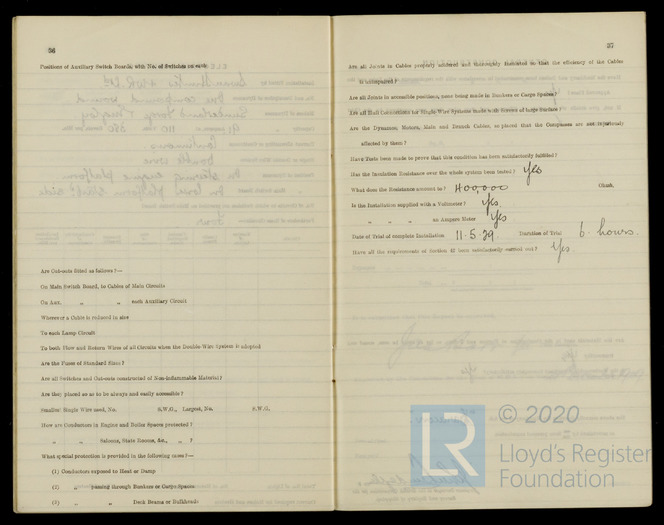 36
Positions of Auxiliary Switch Boards, with No. of Switches on each
Are Cut-outs fitted as follows?—
On Main Switch Board, to Cables of Main Circuits
On Aux. " " each Auxiliary Circuit
Wherever a Cable is reduced in size
To each Lamp Circuit
To both Flow and Return Wires of all Circuits when the Double-Wire System is adopted
Are the Fuses of Standard Sizes?
Are all Switches and Cut-outs constructed of Non-inflammable Material?
Are they placed so as to be always and easily accessible?
Smallest Single Wire used, No. S.W.G., Largest, No. S.W.G.
How are Conductors in Engine and Boiler Spaces protected?
" " Saloons, State Rooms, &c., " ?
What special protection is provided in the following cases?—
(1) Conductors exposed to Heat or Damp
(2) " passing through Bunkers or Cargo Spaces
(3) " " Deck Beams or Bulkheads
37
Are all Joints in Cables properly soldered and thoroughly insulated so that the efficiency of the Cables
is unimpaired?
Are all Joints in accessible positions, none being made in Bunkers or Cargo Spaces?
Are all Hull Connections for Single-Wire Systems made with Screws of large Surface?
Are the Dynamos, Motors, Main and Branch Cables, so placed that the Compasses are not injuriously
affected by them?
Have Tests been made to prove that this condition has been satisfactorily fulfilled?
Has the Insulation Resistance over the whole system been tested? Yes
What does the Resistance amount to? 400,000 Ohms.
Is the Installation supplied with a Voltmeter? Yes.
" " " an Ampere Meter Yes
Date of Trial of complete Installation 11.5.29. Duration of Trial 6 hours.
Have all the requirements of Section 42 been satisfactorily carried out? Yes
LR © 2020
Lloyd's Register
Foundation